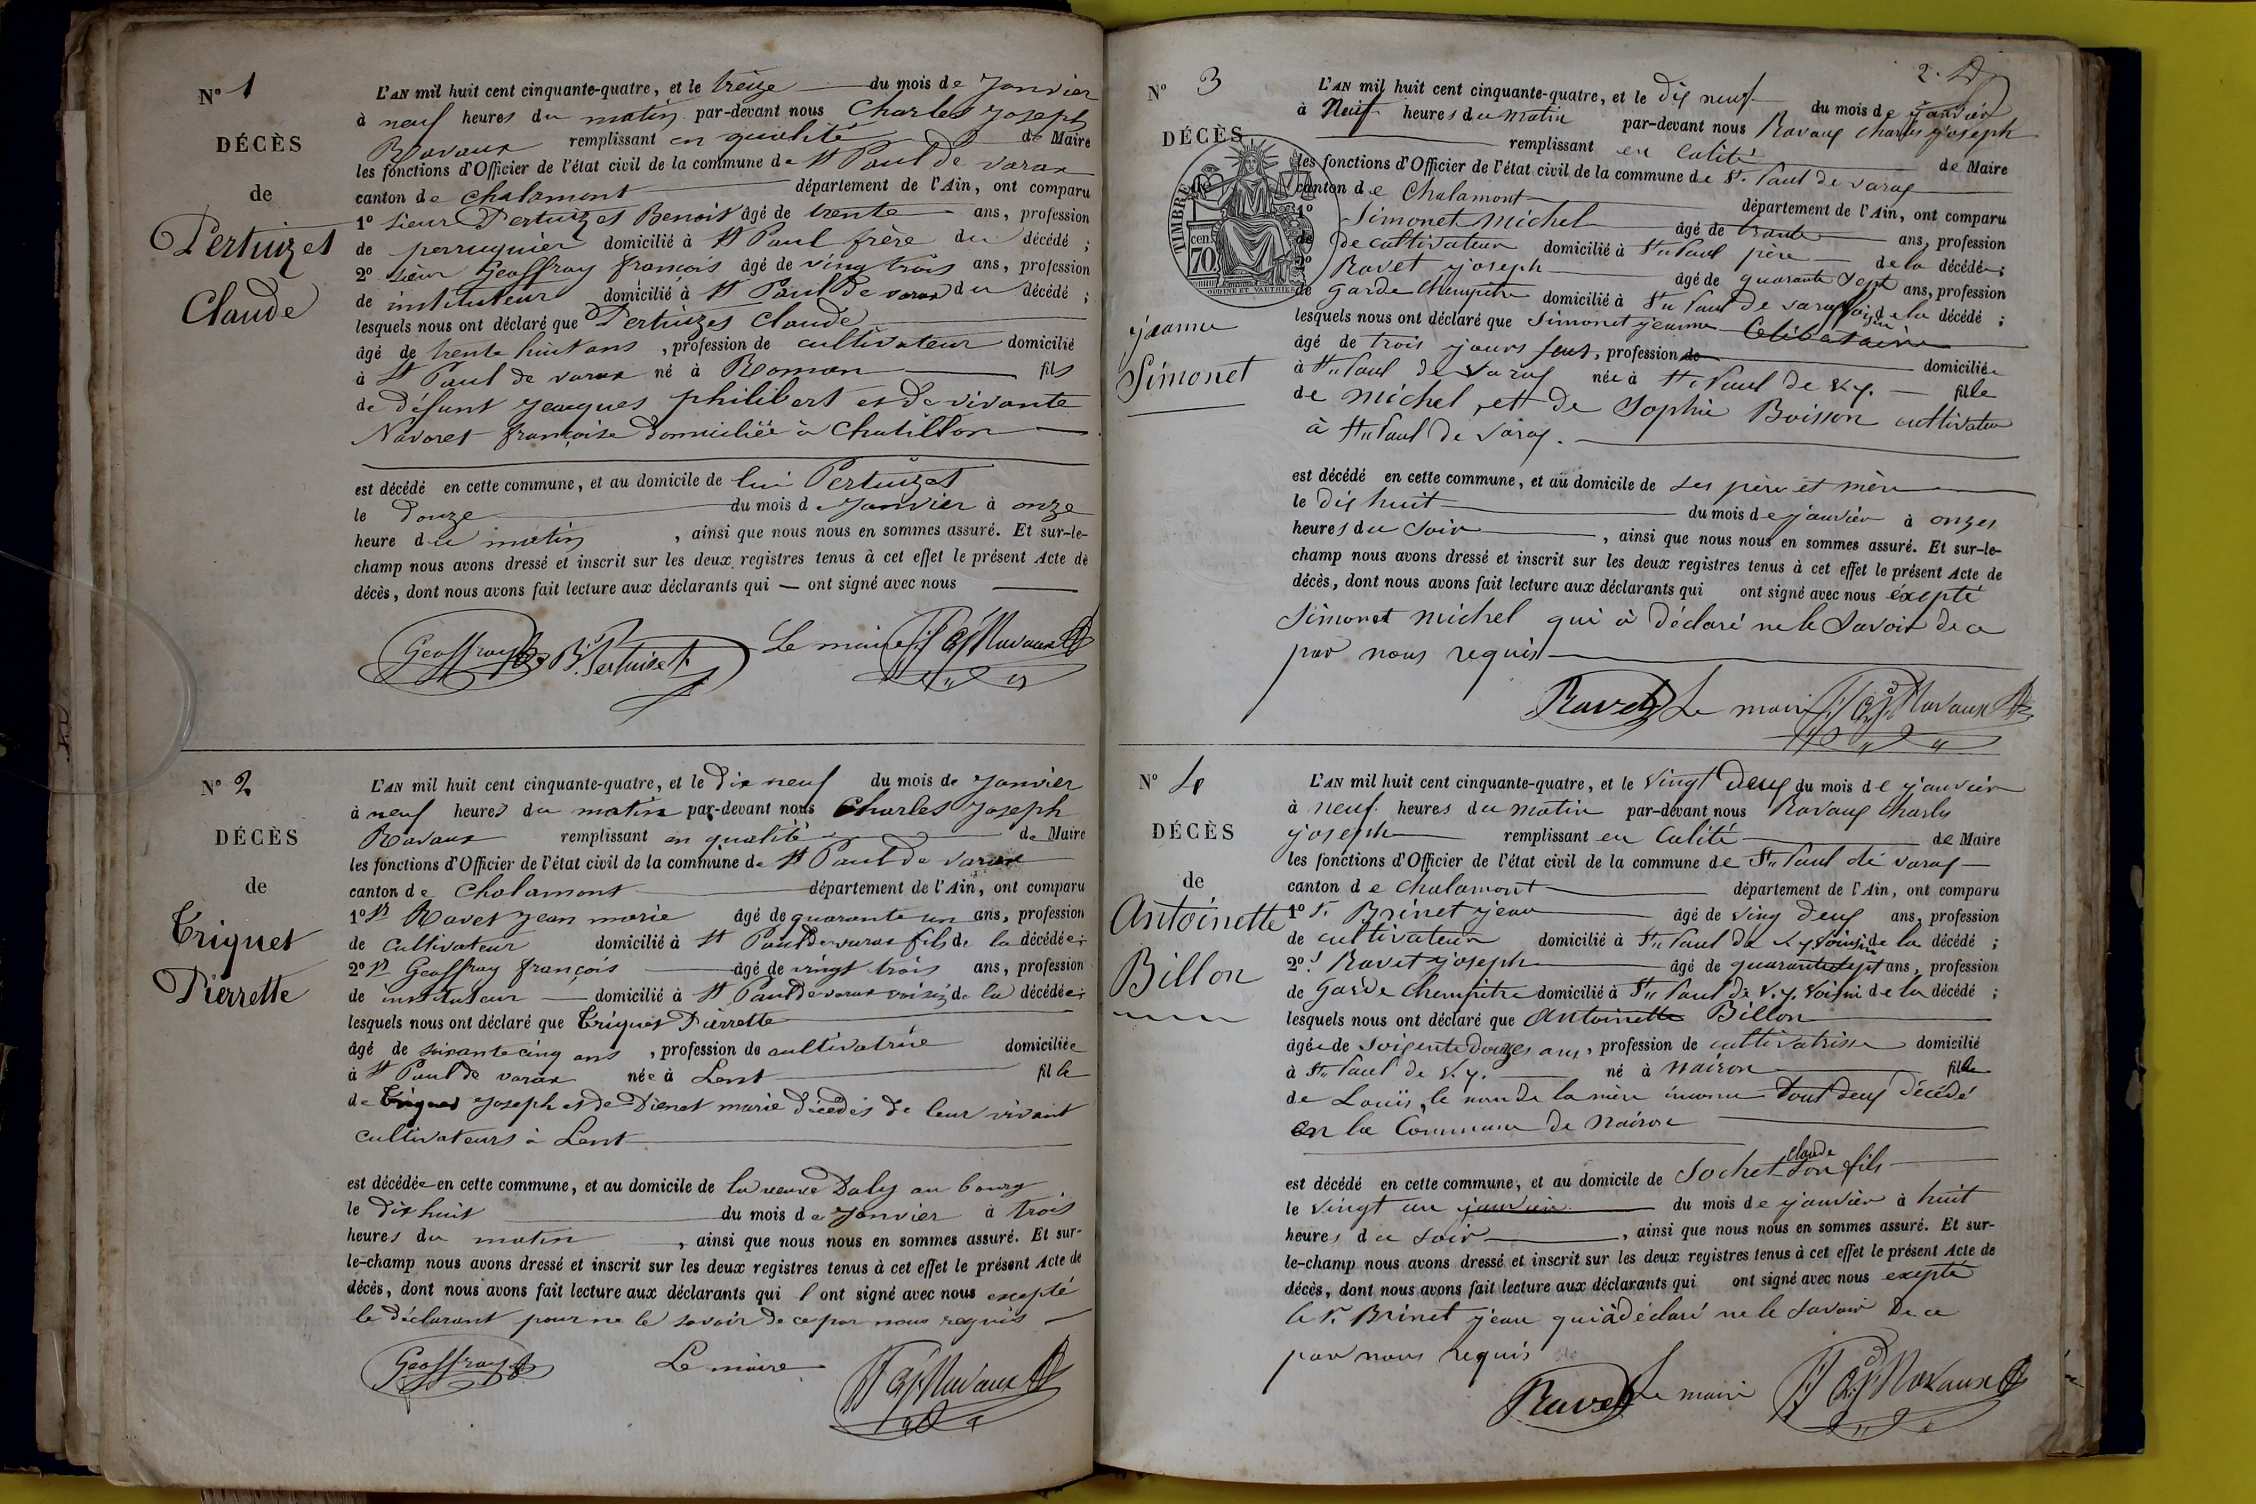 N° 1
DÉCÈS
de
Pertuizet
Claude
L'AN mil huit cent cinquante-quatre, et le treize du mois de Janvier
à neuf heures du matin par-devant nous Charles Joseph
Ravaux remplissant en qualité de Maire
les fonctions d'Officier de l'état civil de la commune de St Paul de varax
canton de Chalamont département de l'Ain, ont comparu
1° Sieur Pertuizet Benoit âgé de trente ans, profession
de perruquier domicilié à St Paul frère du décédé ;
2° sieur Geoffray françois âgé de vingt trois ans, profession
de instituteur domicilié à St Paul de varax du décédé ;
lesquels nous ont déclaré que Pertuizet Claude
âgé de trente huit ans , profession de cultivateur domicilié
à St Paul de varax né à Roman fils
de défunt Jacques philibert et de vivante
Navoret françoise domiciliée à Chatillon
est décédé en cette commune, et au domicile de lui Pertuizet
le Douze du mois de Janvier à onze
heure du matin , ainsi que nous nous en sommes assuré. Et sur-le-
champ nous avons dressé et inscrit sur les deux registres tenus à cet effet le présent Acte de
décès, dont nous avons fait lecture aux déclarants qui — ont signé avec nous
Geoffray B. Pertuiset Le maire Ravaux
N° 2
DÉCÈS
de
Triquet
Pierrette
L'AN mil huit cent cinquante-quatre, et le Dix neuf du mois de Janvier
à neuf heures du matin par-devant nous Charles Joseph
Ravaux remplissant en qualité de Maire
les fonctions d'Officier de l'état civil de la commune de St Paul de varax
canton de Chalamont département de l'Ain, ont comparu
1° Sr Ravet Jean marie âgé de quarante un ans, profession
de Cultivateur domicilié à St Paul de varax fils de la décédée ;
2° Sr Geoffray françois âgé de vingt trois ans, profession
de instituteur domicilié à St Paul de varax voisin de la décédée ;
lesquels nous ont déclaré que Triquet Pierrette
âgé de soixante cinq ans , profession de cultivatrice domiciliée
à St Paul de varax née à Lent fille
de Triquet Joseph et de Dienet marie décédés de leur vivant
cultivateurs à Lent
est décédée en cette commune, et au domicile de la veuve Daly au bourg
le Dix huit du mois de Janvier à trois
heures du matin , ainsi que nous nous en sommes assuré. Et sur-
le-champ nous avons dressé et inscrit sur les deux registres tenus à cet effet le présent Acte de
décès, dont nous avons fait lecture aux déclarants qui l ont signé avec nous excepté
le déclarant pour ne le savoir de ce par nous requis
Geoffray Le maire Ravaux
2.
N° 3
DÉCÈS
de
jeanne
Simonet
TIMBRE
70 cen.
OUDINÉ ET VAUTHIER
L'AN mil huit cent cinquante-quatre, et le dix neuf du mois de janvier
à Neuf heures du matin par-devant nous Ravaux Charles joseph
remplissant en Calité de Maire
les fonctions d'Officier de l'état civil de la commune de St. Paul de varax
canton de Chalamont département de l'Ain, ont comparu
1° Simonet Michel âgé de trante ans, profession
de De cultivateur domicilié à St Paul père de la décédé ;
2° Ravet joseph âgé de quarante sept ans, profession
de garde Champitre domicilié à St Paul de varax voisin de la décédé ;
lesquels nous ont déclaré que Simonet jeanne Celibataire
âgé de trois jours , profession de domiciliée
à St Paul de varax née à St Paul de V.x. fille
de Michel, et de Sophie Boisson cultivateur
à St Paul de varax.
est décédé en cette commune, et au domicile de ses père et mère
le dix huit du mois de janvier à onzes
heures du soir , ainsi que nous nous en sommes assuré. Et sur-le-
champ nous avons dressé et inscrit sur les deux registres tenus à cet effet le présent Acte de
décès, dont nous avons fait lecture aux déclarants qui ont signé avec nous éxepté
Simonet Michel qui à déclaré ne le Savoir de ce
par nous requis
Ravet Le maire Ravaux
N° 4
DÉCÈS
de
Antoinette
Billon
L'AN mil huit cent cinquante-quatre, et le vingt deux du mois de janvier
à neuf heures du matin par-devant nous Ravaux Charles
joseph remplissant en Calité de Maire
les fonctions d'Officier de l'état civil de la commune de St Paul de varax
canton de Chalamont département de l'Ain, ont comparu
1° Sr. Brinet jean âgé de ving deux ans, profession
de cultivateur domicilié à St Paul de V.x voisin de la décédé ;
2° S. Ravet joseph âgé de quarante sept ans, profession
de Garde Champitre domicilié à St Paul de V.x. voisin de la décédé ;
lesquels nous ont déclaré que Antoinette Billon
âgée de Soisente douzes ans, profession de cultivatrisse domicilié
à St Paul de V.x. né à Nairon fille
de Louis, le nom de la mère inconnu tout deux décédé
en la Commune de Nairon
est décédé en cette commune, et au domicile de Sochet Claude Son fils
le vingt un janvier du mois de janvier à huit
heures du soir , ainsi que nous nous en sommes assuré. Et sur-
le-champ nous avons dressé et inscrit sur les deux registres tenus à cet effet le présent Acte de
décès, dont nous avons fait lecture aux déclarants qui ont signé avec nous exepté
le Sr. Brinet jean qui à déclaré ne le savoir De ce
par nous requis
Ravet Le maire Ravaux